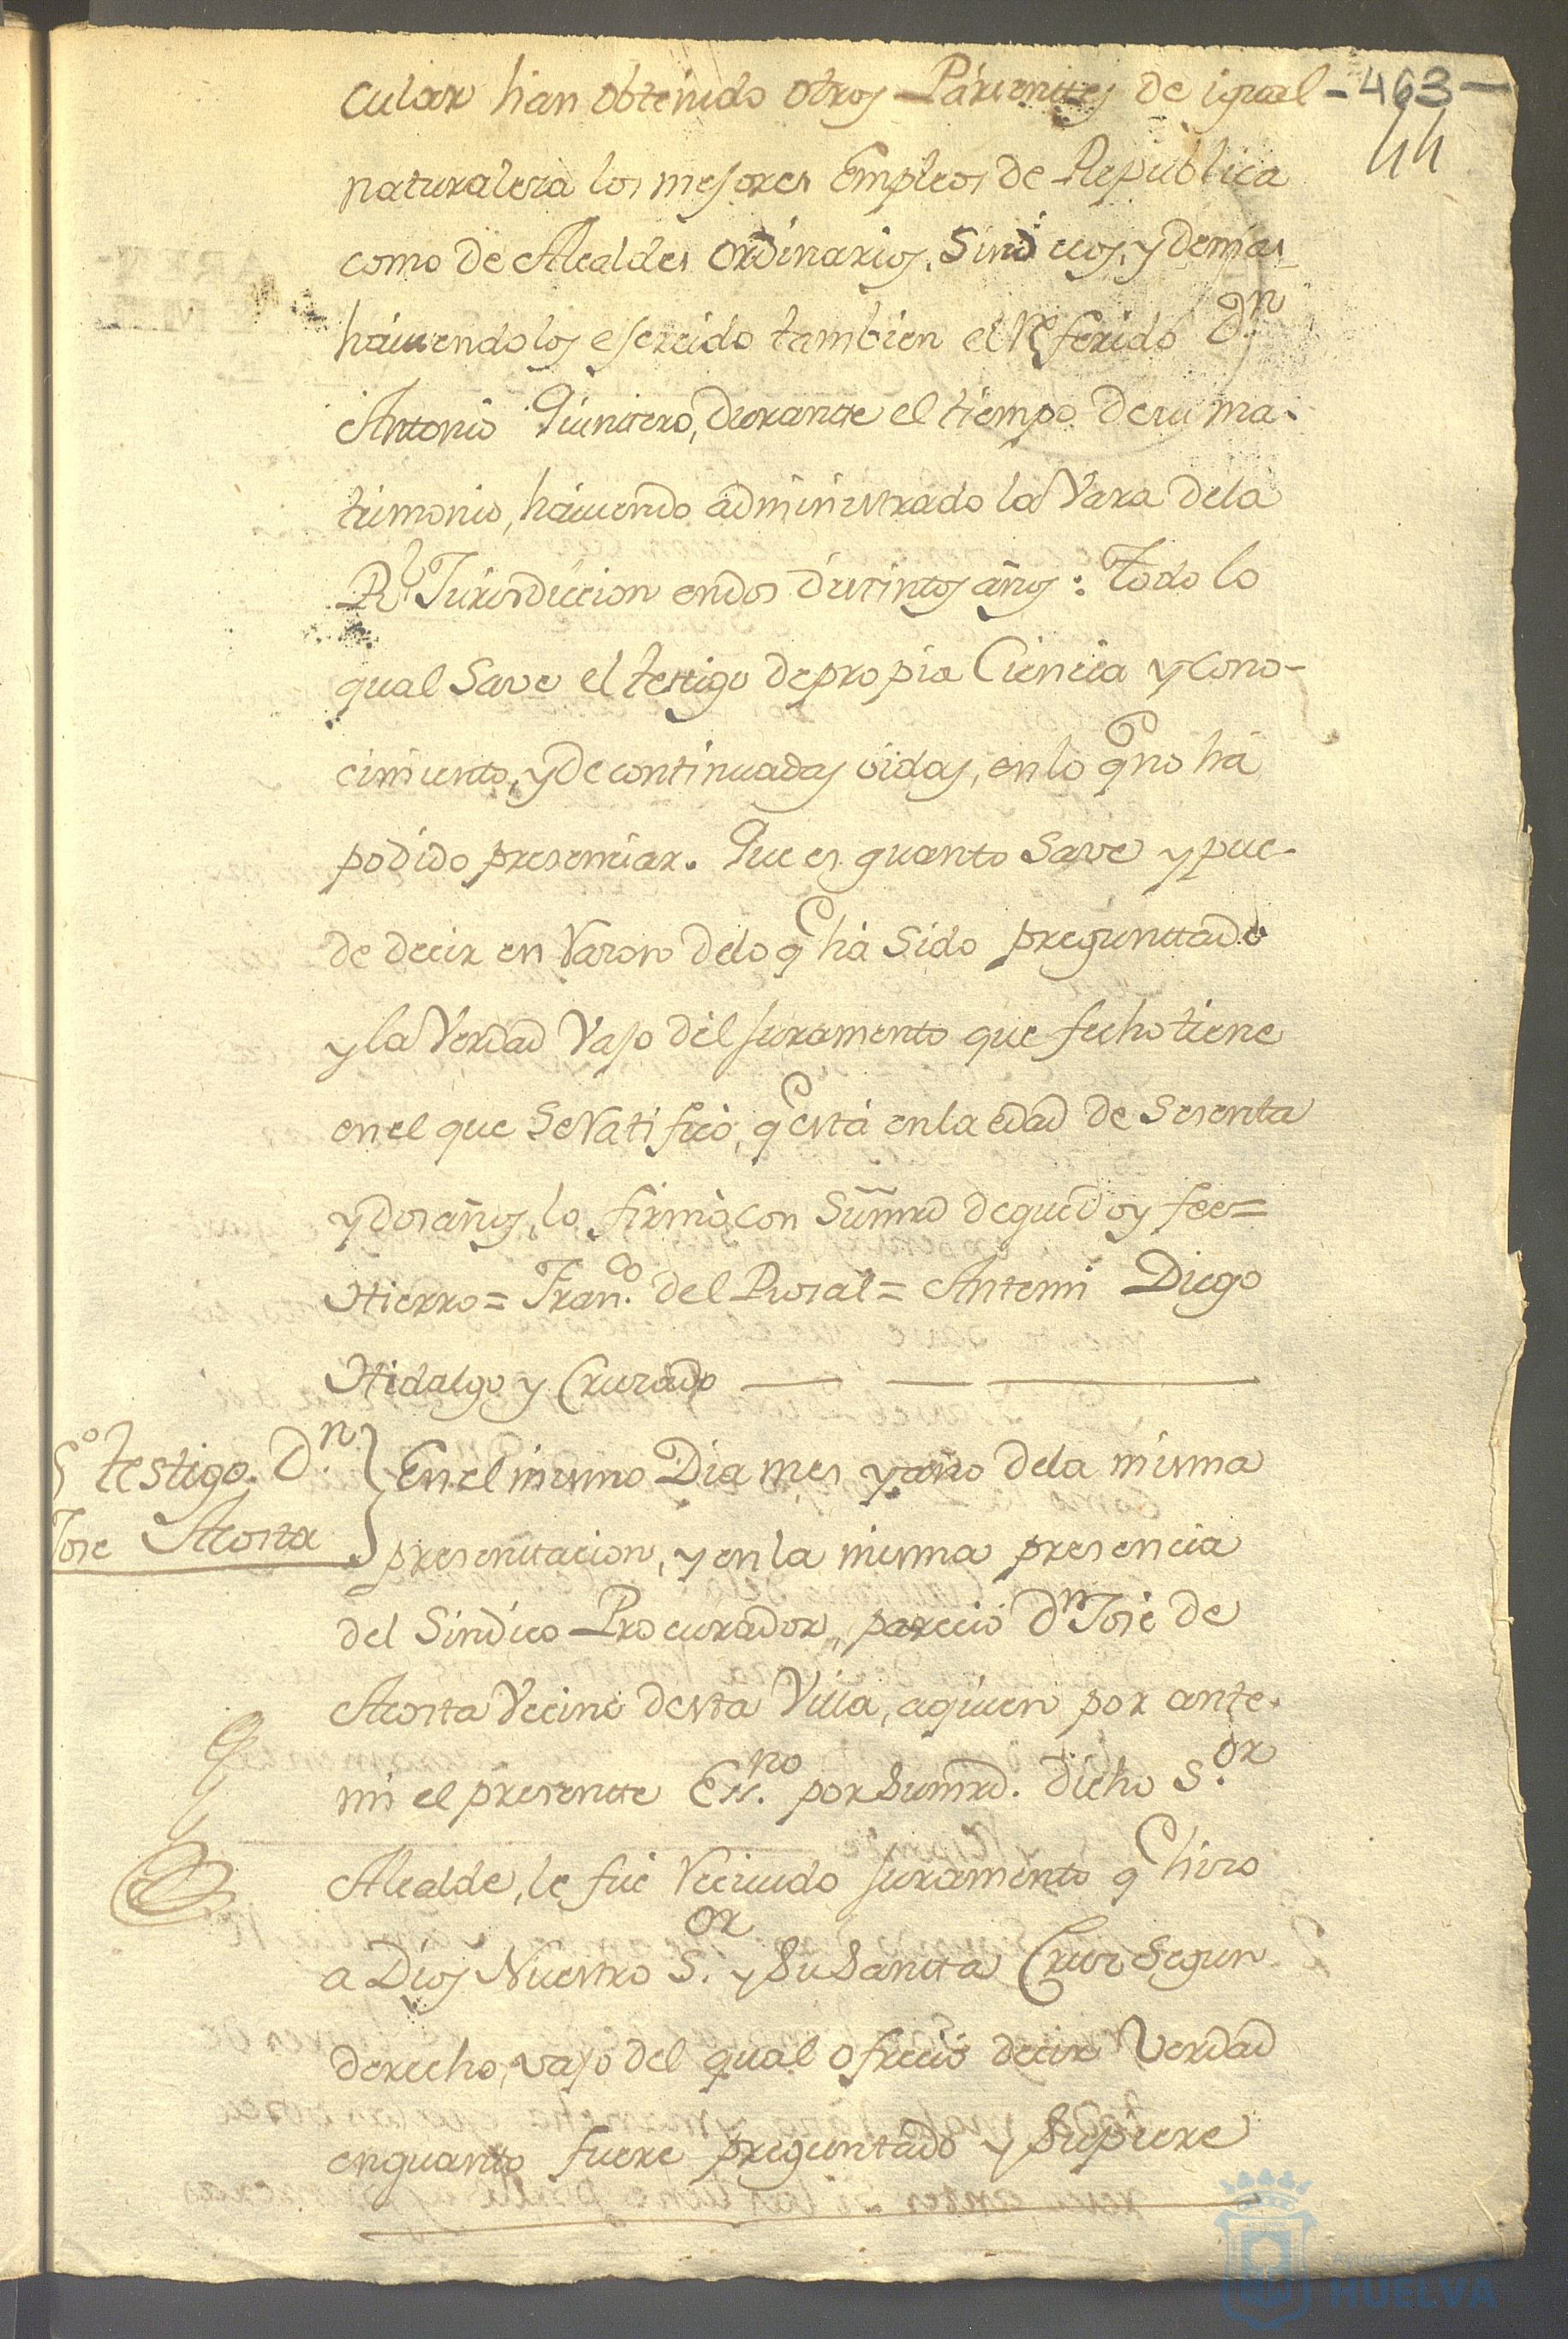 cular han obtenido otros Parientes de igual - 463 -
44
naturaleza los mejores Empleos de Republica
como de Alcaldes ordinarios, Sindicos, y demas
haviendolos esercido tambien el Referido D.n
Antonio Quintero, durante el tiempo de su ma-
trimonio, haviendo administrado la Vara dela
Rl Jurisdiccion endos distintos años: Todo lo
qual Save el testigo depropia Ciencia y cono-
cimiento, y de continuadas oidas, en lo q no ha
podido presenciar. Que es quanto Save y pue-
de decir en Razon delo q ha Sido preguntado
y la Verdad Vajo del juramento que fecho tiene
en el que Se Ratificò, q està en la edad de Sesenta
y dos años, lo firmò con Sumrd de que doy fee=
Hierro= Fran.co del Rosal= Antemi Diego
Hidalgo y Cruzado
5.o testigo. D.n
Jose Acosta
En el mismo Dia mes y año dela misma
presentacion, y en la misma presencia
del Sindico Procurador, pareciò Dn Josè de
Acosta Vecino desta Villa, aquien por ante-
mi el presente Ess.no por Sumrd. dicho S.or
Alcalde, le fuè Recivido juramento q hizo
a Dios Nuestro S.or y Su Santa Cruz Segun
derecho, vajo del qual ofreciò decir Verdad
enquanto fuere preguntado y Supiere
AYUNTAMIENTO
HUELVA